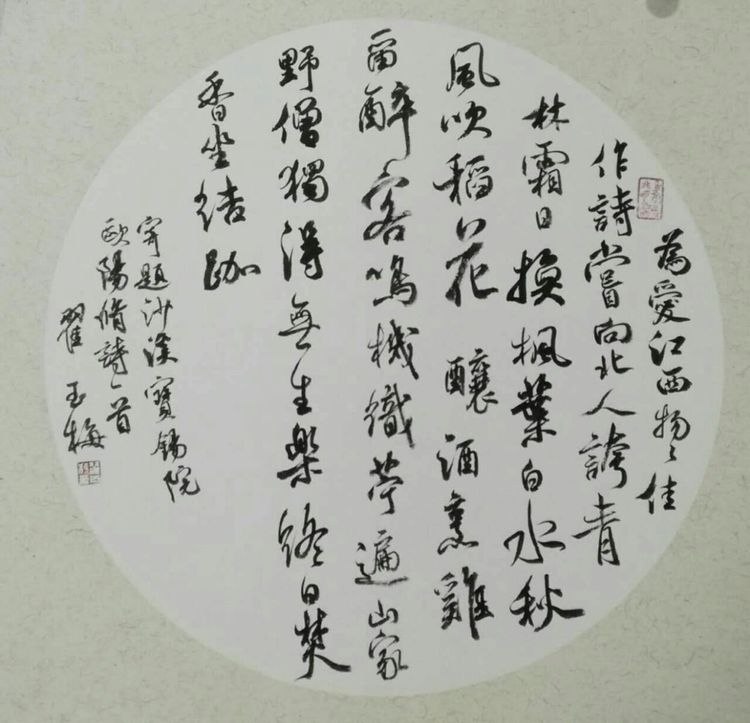 為愛江西物〻佳
作詩嘗向北人誇青
林霜日換楓葉白水秋
風吹稻花釀酒烹雞
留醉客鳴機織苧遍山家
野僧獨得無生樂終日焚
香坐結跏
寄題沙溪寶錫院
歐陽脩詩一首
翟玉梅